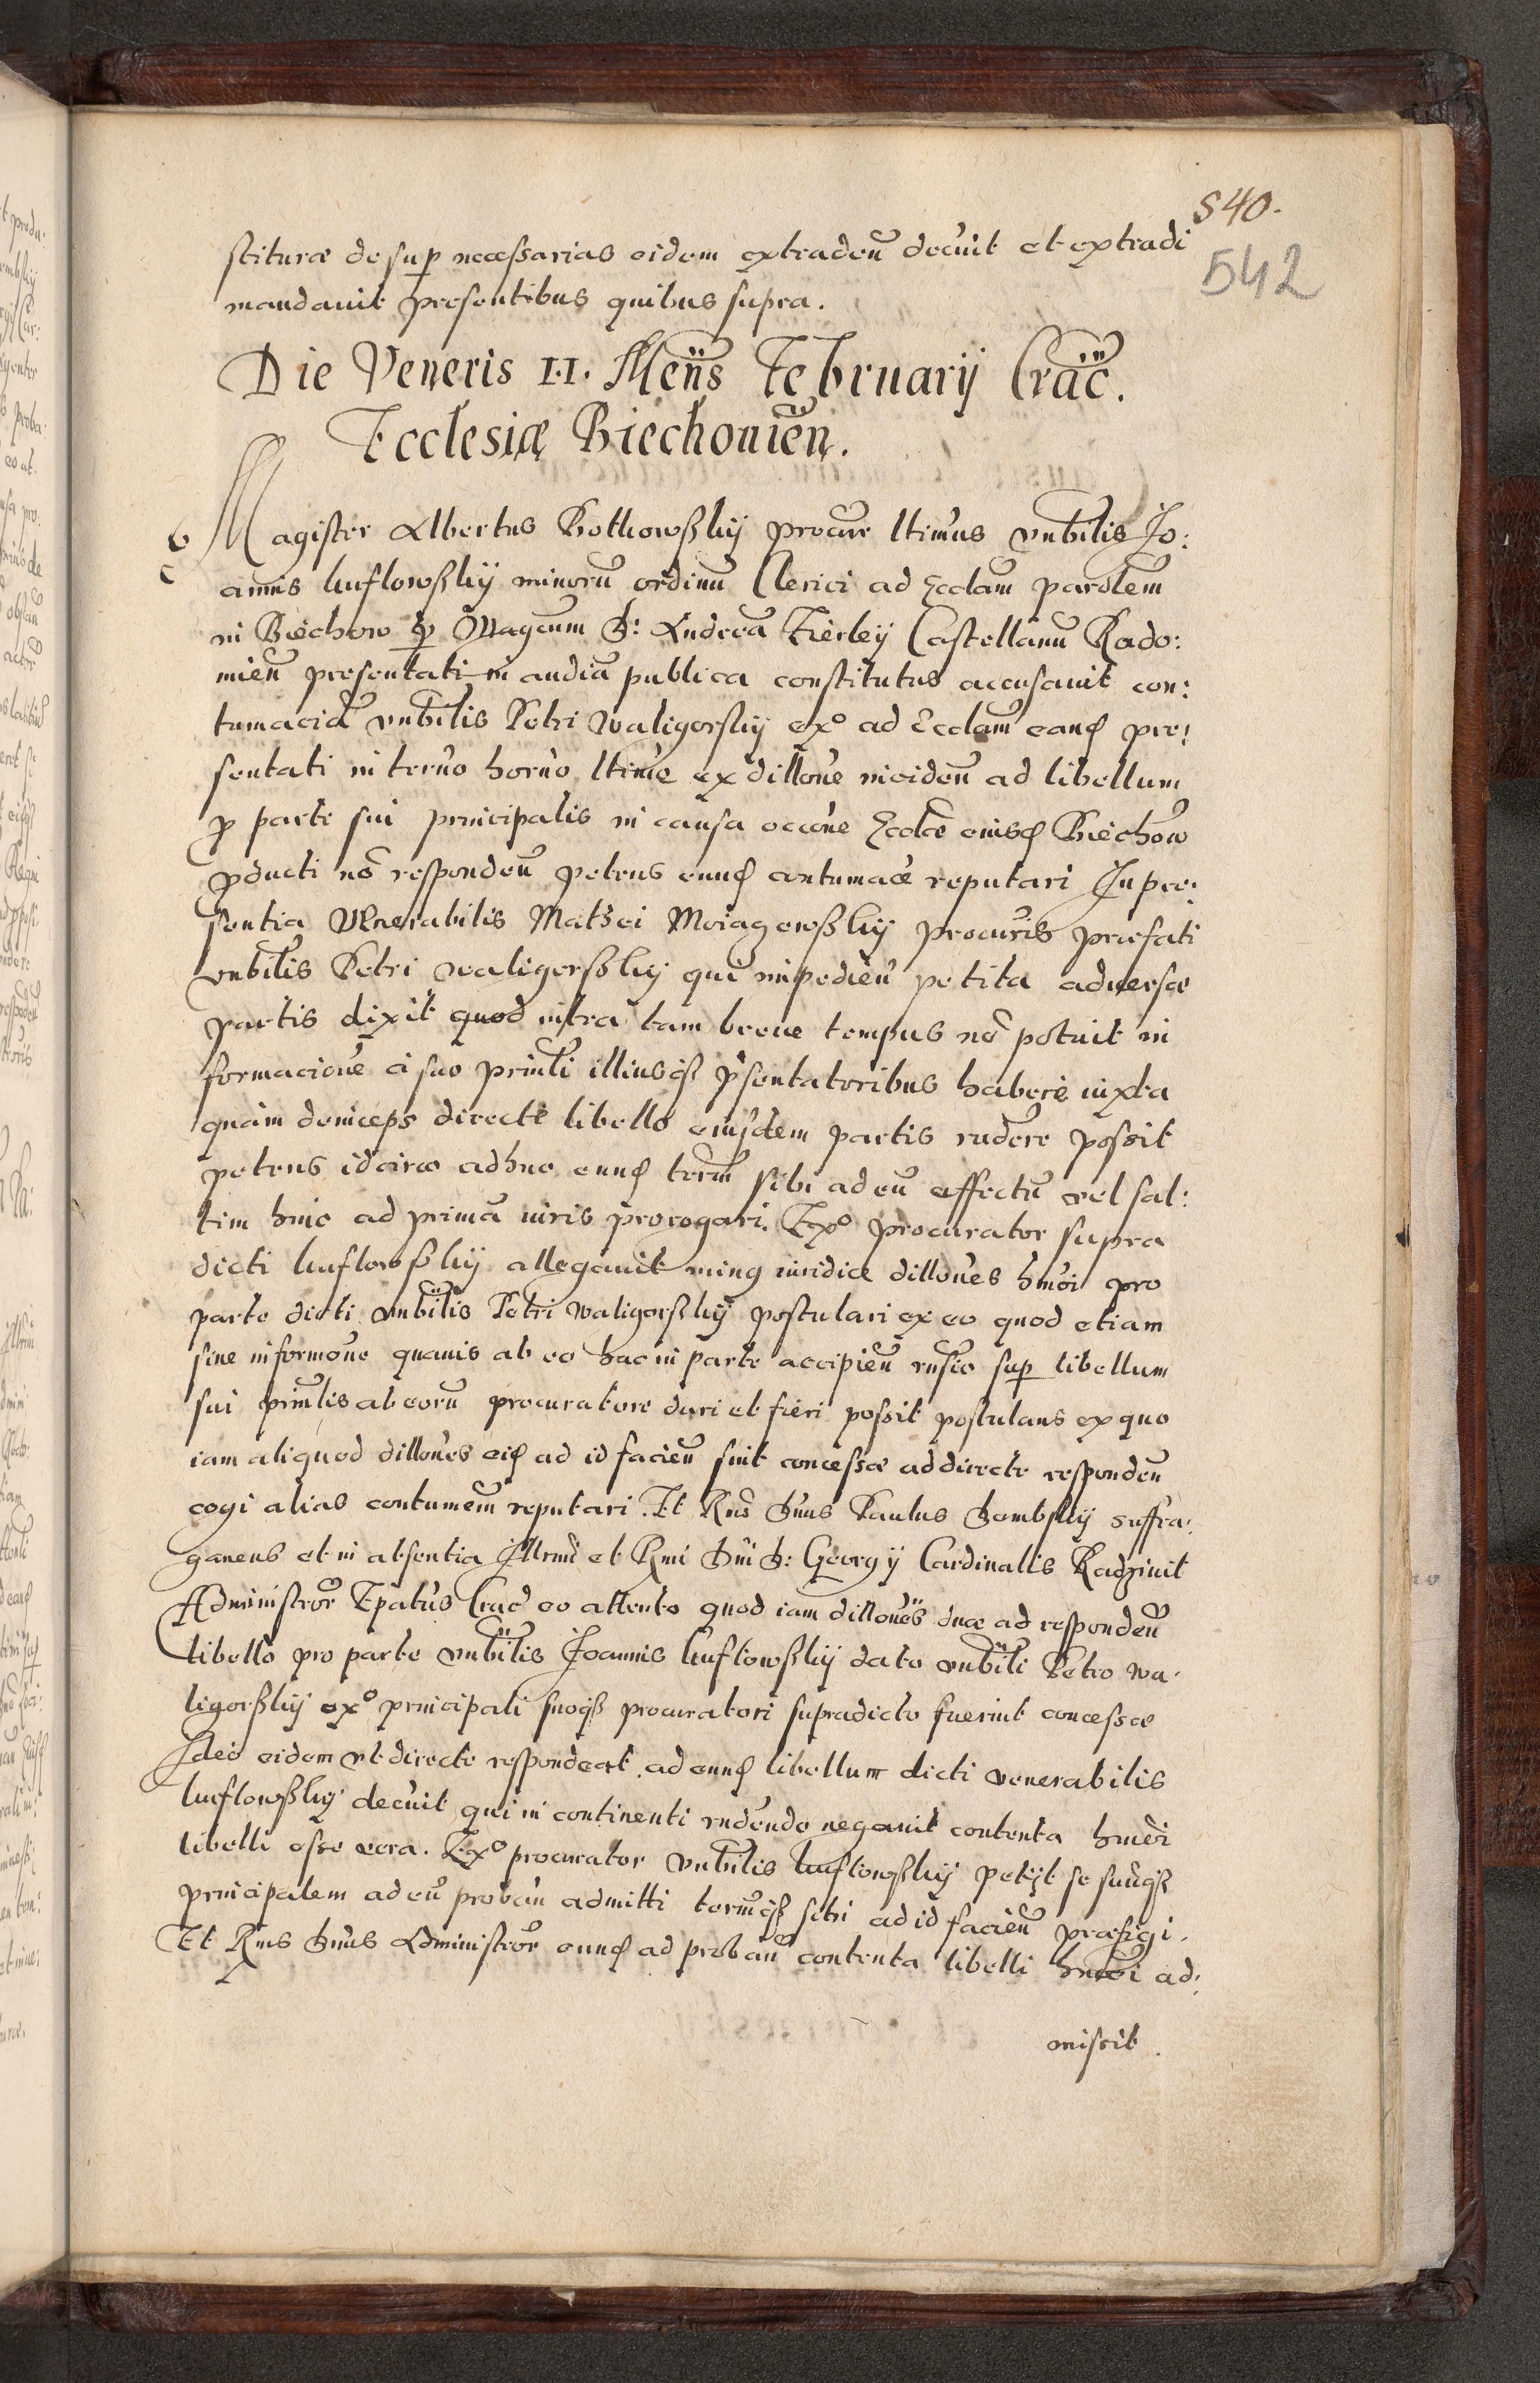 540.
542
stituræ desup necessarias eidem extradeñ decũit et extradi
mandauit presentibus quibus supra.
Die Veneris 11. Meñs February Crac̃.
Ecclesiæ Biechouieñ.
Magister Albertus Bolkowsky procur̃r ltimus vnbilis Jo:
annis kusłowsky minorũ ordinũ Clerici ad Eccłam parołem
in Biechow p Magcum D: Andreã Fierley Castellanũ Rado:
mieñ presentati in audiã publica constitutus accusauit con:
tumaciã vnbilis Petri waligorsky exº ad Eccłam eand pre:
sentati in term̃o hor̃no ltime ex dillone incideñ ad libellum
p parte sui principalis in causa occ̃one Eccłæ eiusd Biechow
pducti nõ respondeñ petens eund contumacẽ reputari In pre:
sentia Venerabilis Mathei procuris præfati
vnbilis Petri waligorsky qui impedieñ petita aduersæ
partis dixit quod intra tam breue tempus nõ potuit in
formacionẽ a suo prinłi illiusq psentatoribus habere iuxta
quàm deinceps directè libello eiusdem partis rñdere possit
petens idcirco adhuc eund term̃ sibi ad eũ effectũ vel sal:
tim hinc ad primã iuris prorogari. Exº procurator supra
dicti kusłowsky allegauit iuridice dillones hm̃oi pro
parte dicti vnbilis Petri waligorsky postulari ex eo quod etiam
sine informone quauis ab eo hac in parte accipieñ rñsio sup libellum
sui prinłis ab eorũ procuratore dari et fieri possit postulans ex quo
iam aliquod dillones eid ad id facieñ sint concessæ ad directe respondeñ
cogi alias contumem reputari. Et Rñs Dñus Paulus Dembsky suffra:
ganeus et in absentia Illrmi et Rmi Dñi D: Georgy Cardinalis Radziuil
Administror Epatus Crac̃ eo attento quod iam dillones duæ ad respondeñ
libello pro parte vnbilis Joannis kusłowsky dato vnbili Petro wa:
ligorsky exº principali suoq procuratori supradicto fuerint concessæ
Ideo eidem vt directe respondeat ad eund libellum dicti venerabilis
kusłowsky decũit qui in continenti rñdendo negauit contenta hm̃oi
libelli esse vera. Exº procurator vnbilis kusłowsky petijt se suũq
principalem ad eũ probañ admitti termũq sibi ad id facieñ præfigi.
Et Rñs Dñus Administror eund ad probañ contenta libelli hm̃oi ad:
misit.